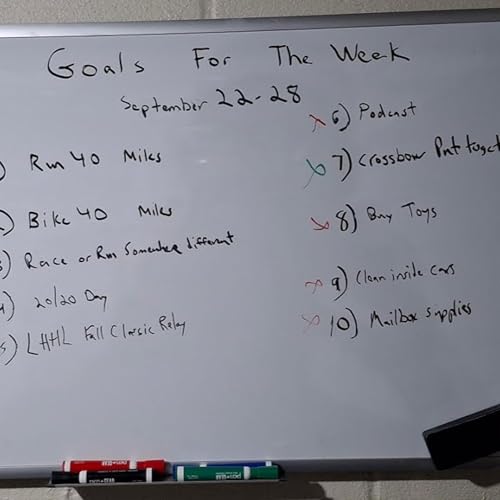 Goals For The Week
September 22-28
) Run 40 Miles
) Bike 40 Miles
3) Race or Run Somewhere different
4) 20/20 Day
5) LHHL Fall Classic Relay
x 6) Podcast
x 7) Crossbow Put toget
x 8) Buy Toys
x 9) Clean inside cars
x 10) Mailbox supplies
EXPO
EXPO
EXPO